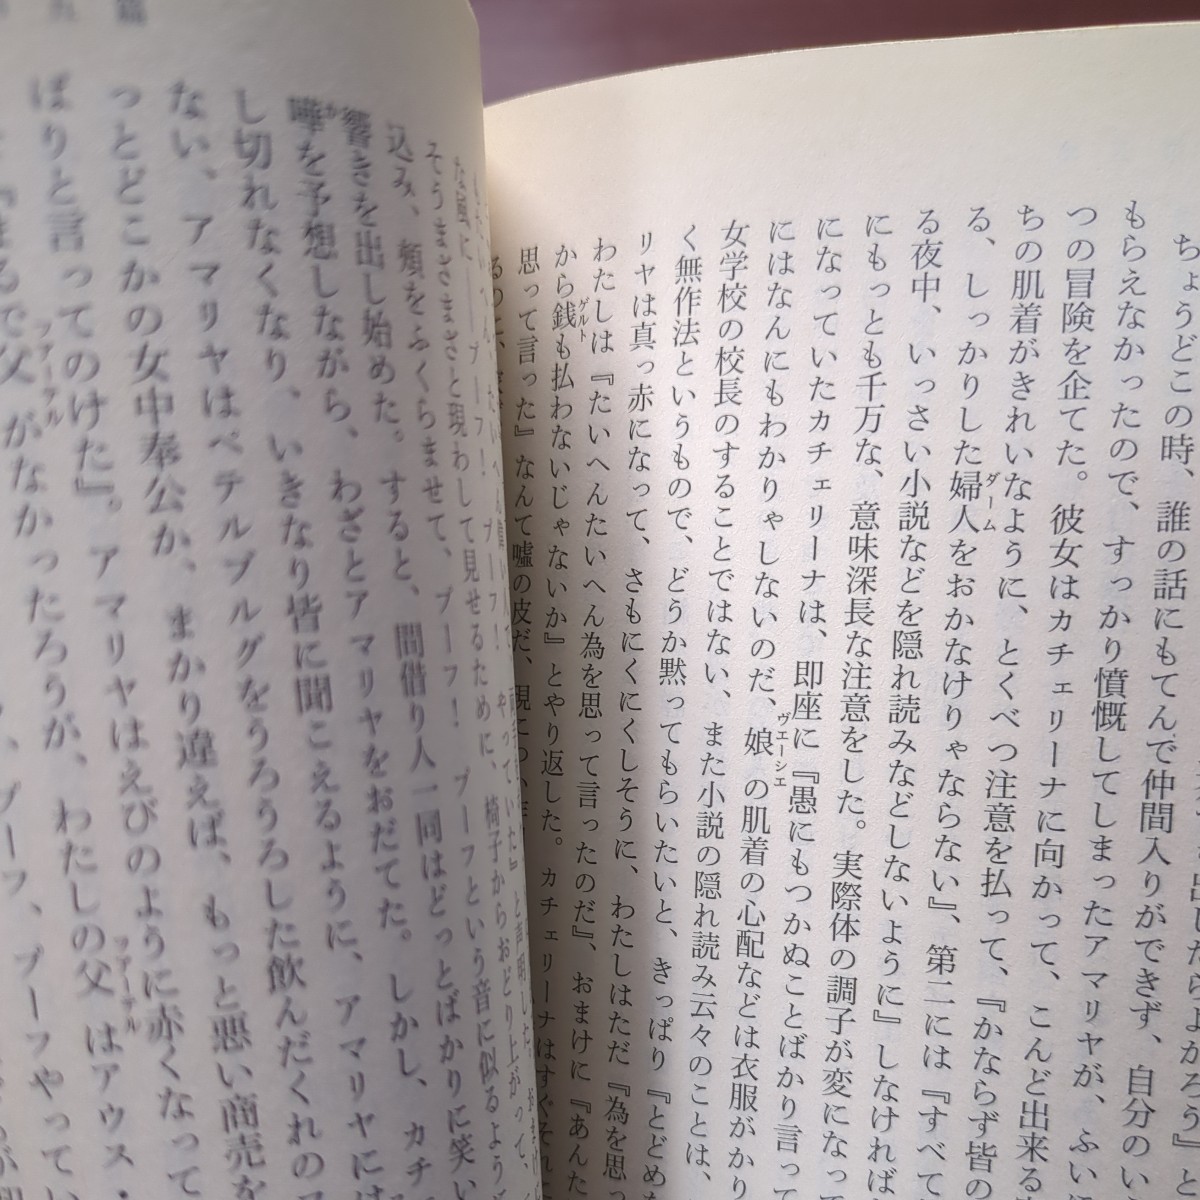 ちょうどこの時、誰の話にもてんで仲間入りができず、自分のい
もらえなかったので、すっかり憤慨してしまったアマリヤが、ふい
つの冒険を企てた。彼女はカチェリーナに向かって、こんど出来る
ちの肌着がきれいなように、とくべつ注意を払って、『かならず皆の
る、しっかりした婦人をおかなけりゃならない』、第二には『すべて
ダーム
る夜中、いっさい小説などを隠れ読みなどしないように』しなければ
にもっとも千万な、意味深長な注意をした。実際体の調子が変になって
になっていたカチェリーナは、即座に『愚にもつかぬことばかり言って
にはなんにもわかりゃしないのだ、娘の肌着の心配などは衣服がかり
ヴェーシェ
女学校の校長のすることではない、また小説の隠れ読み云々のことは、
く無作法というもので、どうか黙ってもらいたいと、きっぱり『とどめ
リヤは真っ赤になって、さもにくにくしそうに、わたしはただ『為を思
わたしは『たいへんたいへん為を思って言ったのだ』、おまけに『あんた
から銭も払わないじゃないか』とやり返した。カチェリーナはすぐそれ
ゲルト
思って言った』なんて嘘の皮だ、現に
な風に――プーフ！プーフ！やっていた』と言明した。
そうまざまざと現わして見せるために、椅子からおどり上がって、
込み、頬をふくらませて、プーフ！プーフという音に似るような
響きを出し始めた。すると、間借り人一同はどっとばかりに笑い
嘩を予想しながら、わざとアマリヤをおだてた。しかし、カチ
し切れなくなり、いきなり皆に聞こえるように、アマリヤには
ない、アマリヤはペテルブルグをうろうろした飲んだくれの
っとどこかの女中奉公か、まかり違えば、もっと悪い商売を
ばりと言ってのけた』。アマリヤはえびのように赤くなって
『まるで父がなかったろうが、わたしの父はアウス・
ファーテル
ファーテル
プーフ、プーフやってい